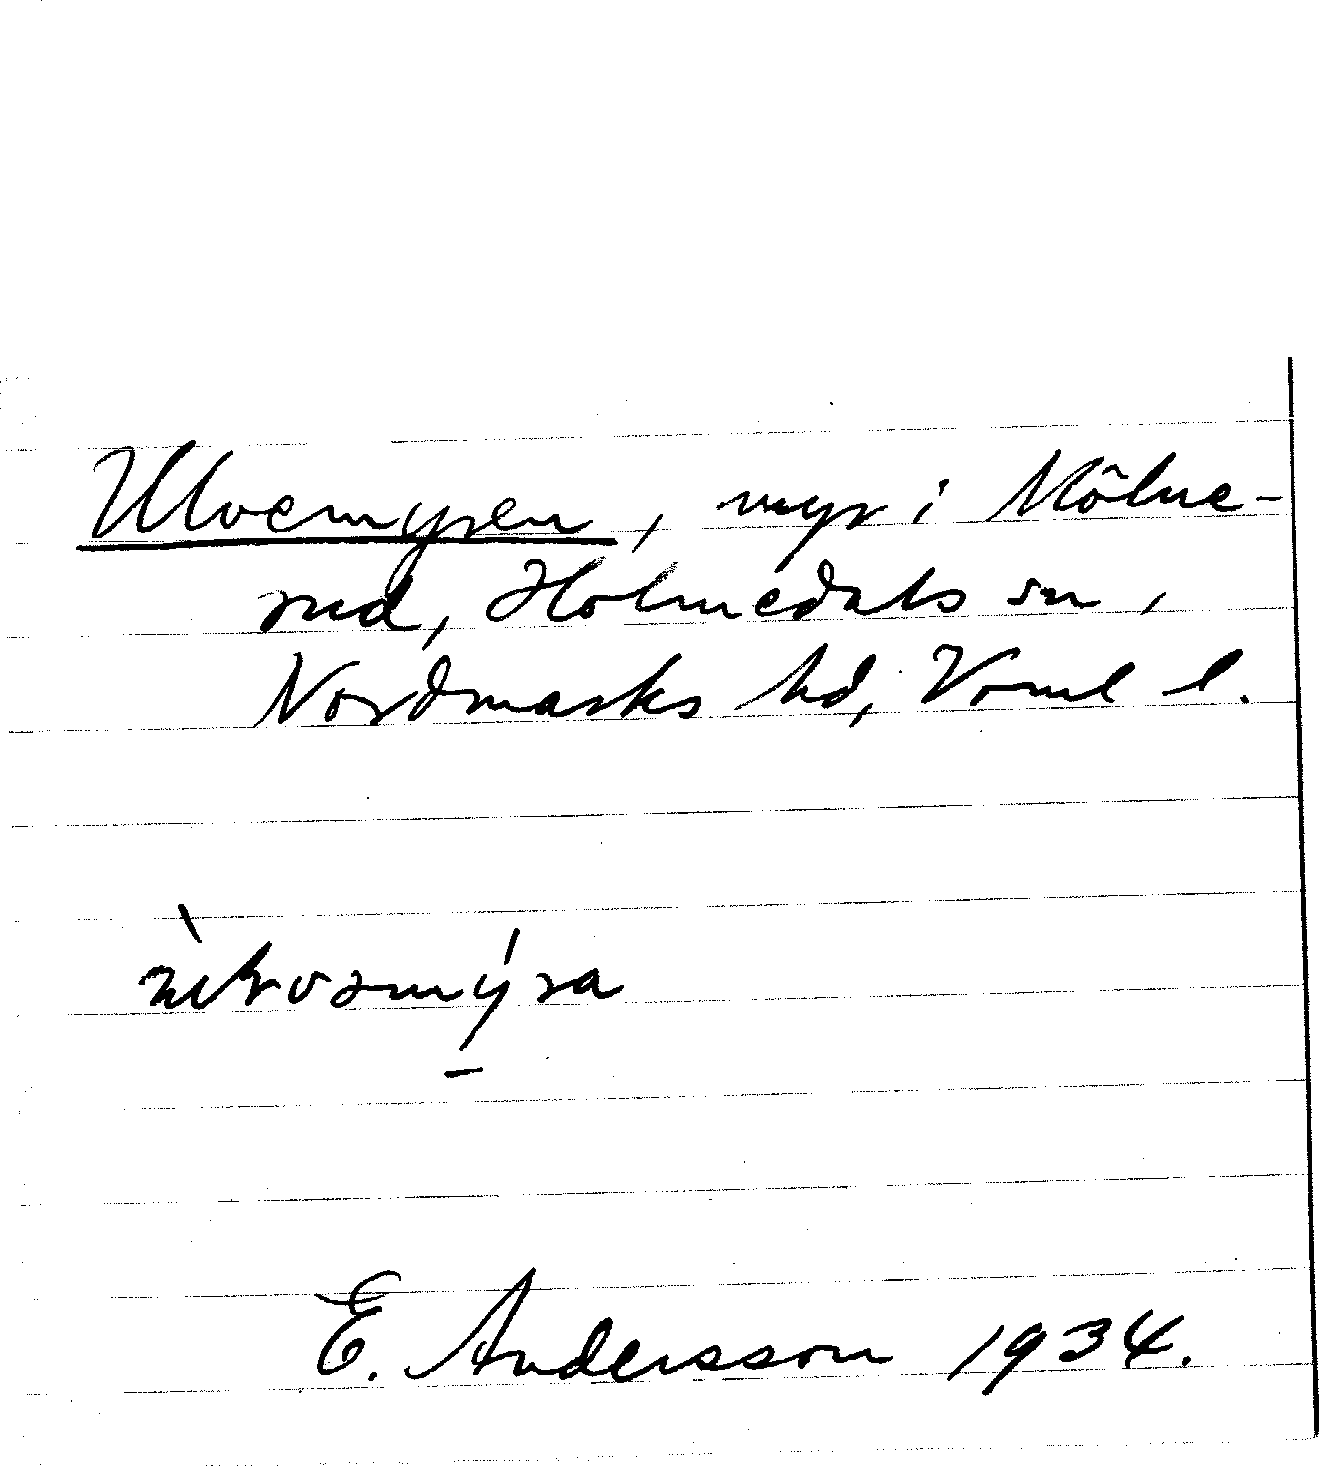 Ulvemyren, myr i Mölne-
rud, Holmedals sn,
Nordmarks hd, Värml l.
E. Andersson 1934.